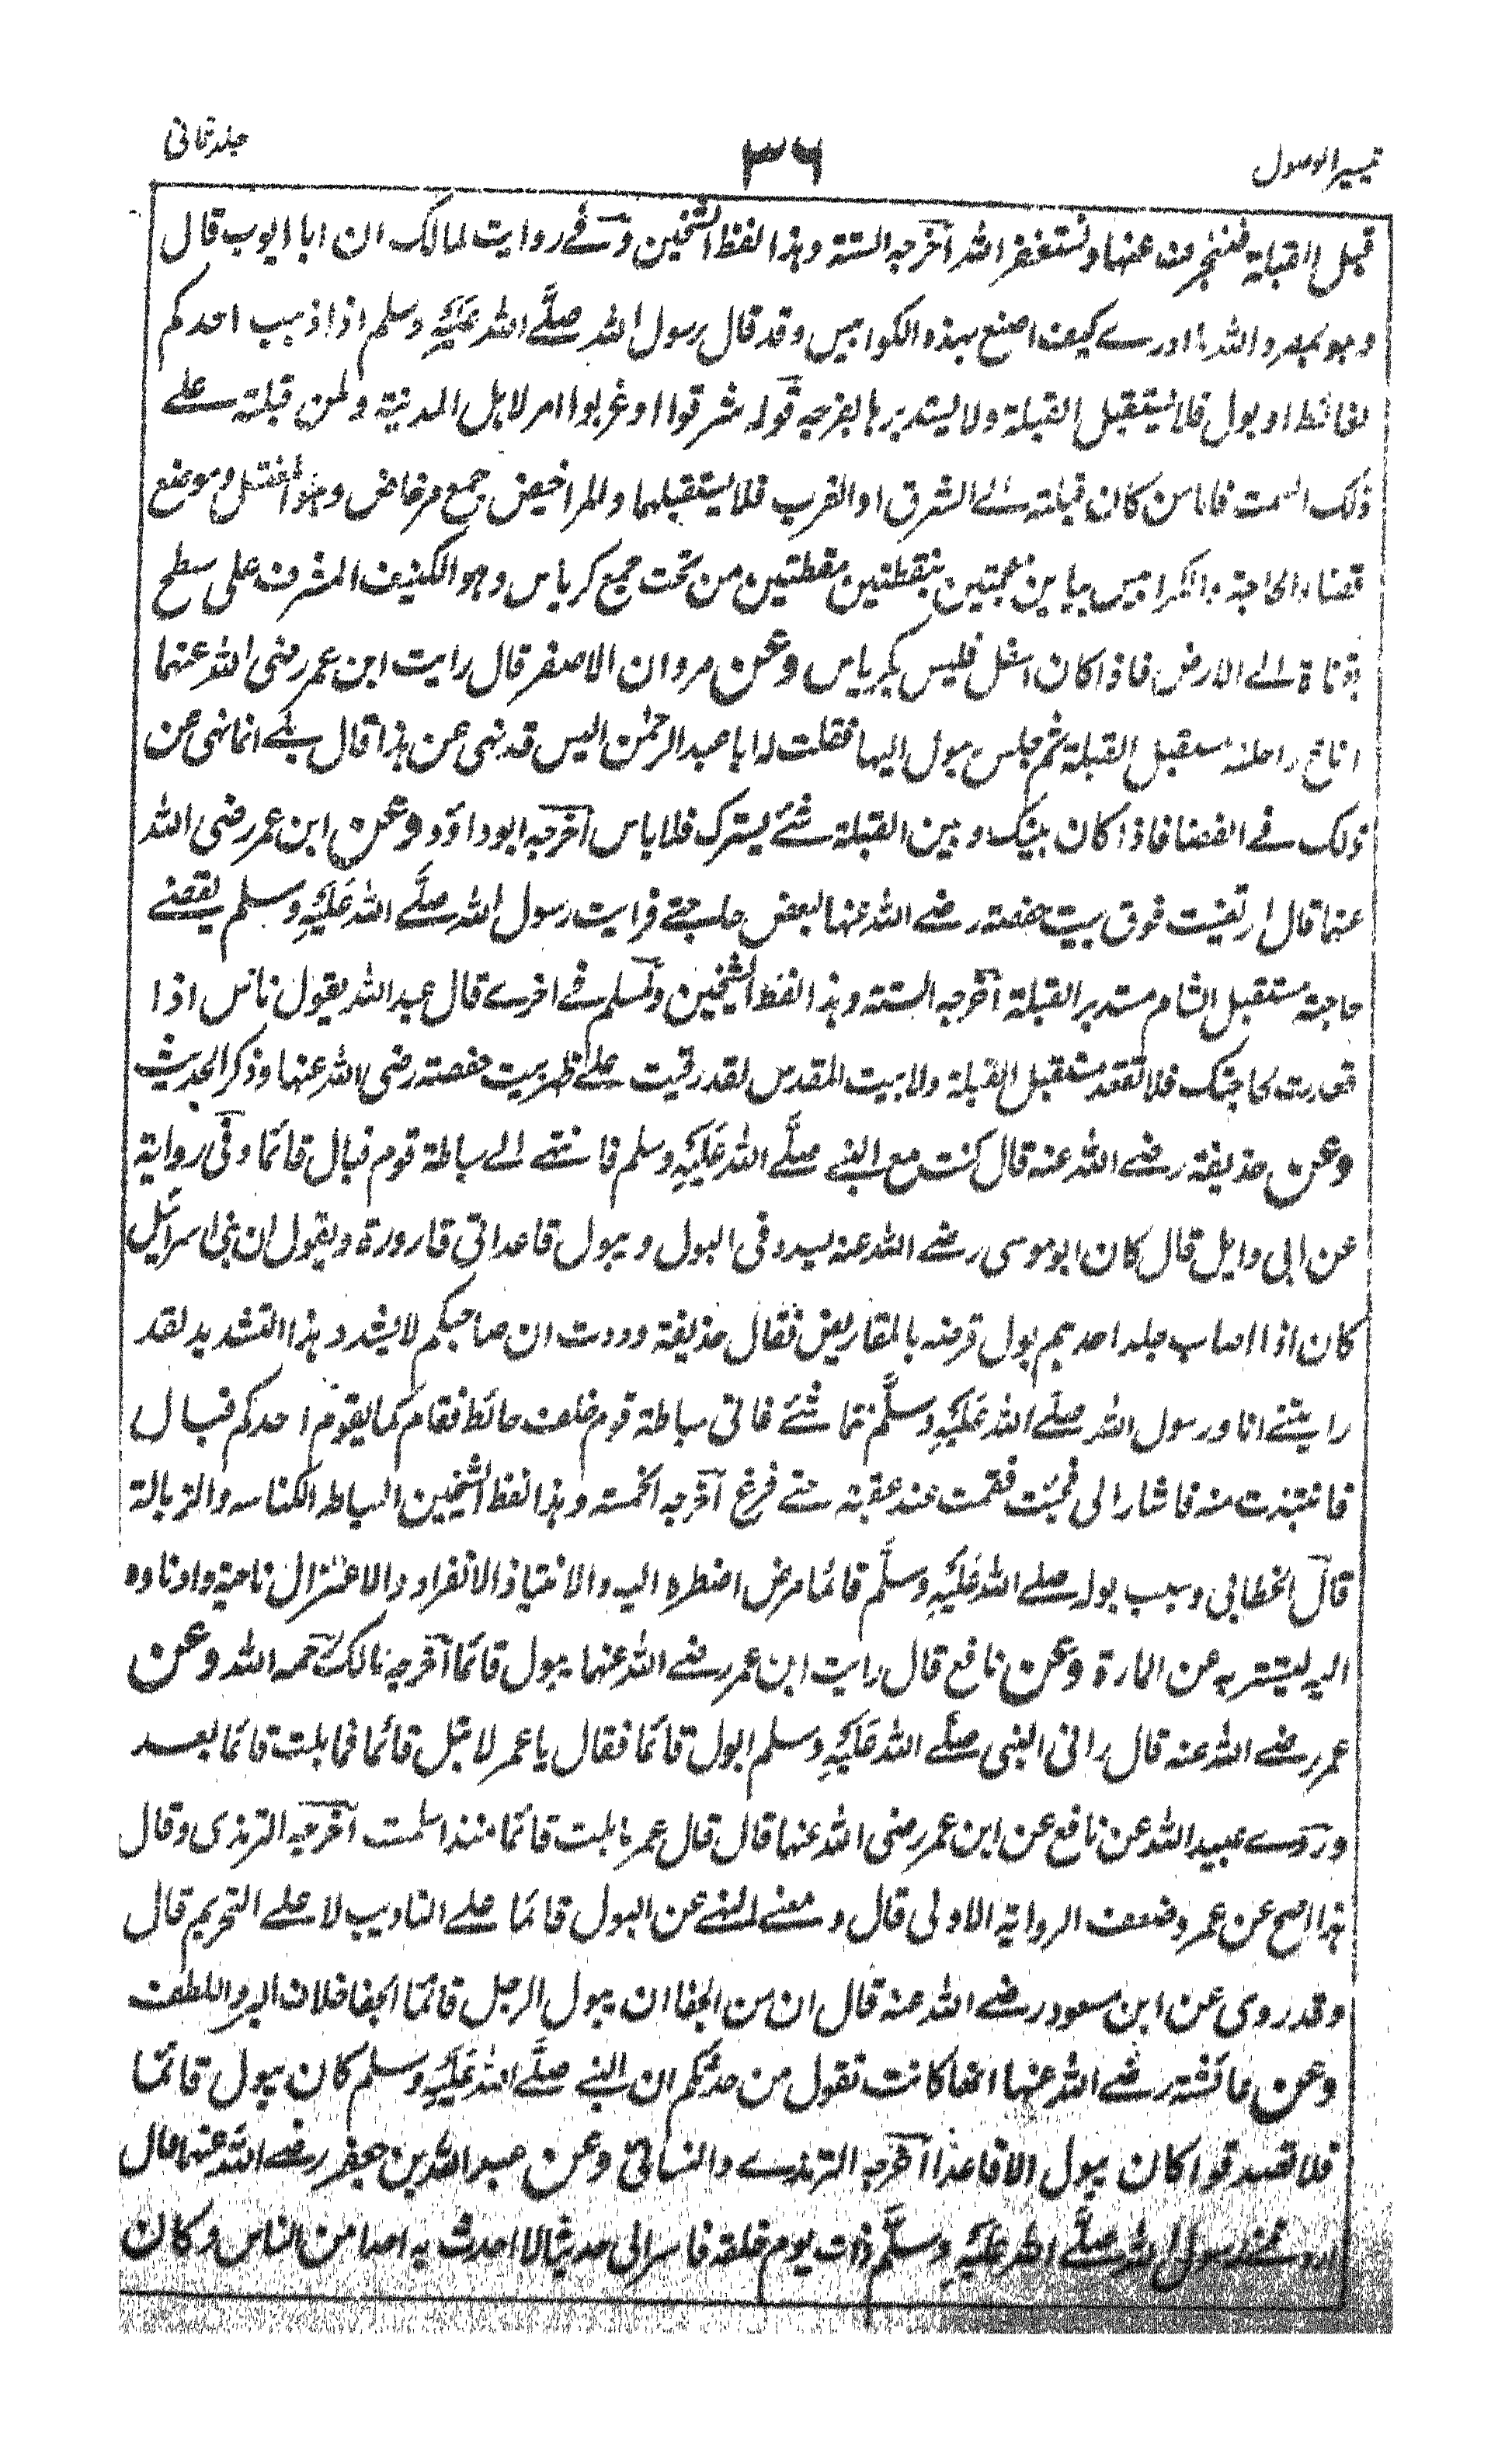 تيسير الوصول
۳۶
جلد ثانی
قبل القبلة فننحرف عنها ونستغفر الله اخرجه الستة وهذا لفظ الشيخين وفي روايت لمالك ان ابا ايوب قال
وهو بمصر والله ما ادرى كيف اصنع بهذه الكراييس وقد قال رسول الله صلى الله عليه وسلم اذا ذهب احدكم
لغائط او بول فلا يستقبل القبلة ولا يستدبرها بفرجه قوله شرقوا او غربوا امر لاهل المدينة ولمن قبلته على
ذلك السمت فاما من كان قبلته الى الشرق او الغرب فلا يستقبلها والمراحيض جمع مرحاض وهو المغتسل وموضع
قضاء الحاجة والكراييس بياين معجمتين بنقطتين من تحت جمع كرياس وهو الكنيف المشرف على سطح
بقناة الى الارض فاذا كان اسفل فليس بكرياس وعن مروان الاصفر قال رايت ابن عمر رضى الله عنهما
اناخ راحلته مستقبل القبلة ثم جلس يبول اليها فقلت له ابا عبد الرحمن اليس قد نهى عن هذا قال بلى انما نهى عن
ذلك فى الفضا فاذا كان بينك وبين القبلة شئ يسترك فلا باس اخرجه ابوداؤد وعن ابن عمر رضى الله
عنهما قال ارتقيت فوق بيت حفصة رضى الله عنها لبعض حاجتى فرايت رسول الله صلى الله عليه وسلم يقضى
حاجته مستقبل الشام مستدبر القبلة اخرجه الستة وهذا لفظ الشيخين ولمسلم فى اخرى قال عبد الله يقول ناس اذا
قعدت لحاجتك فلا تقعد مستقبل القبلة ولا بيت المقدس لقد رقيت على ظهر بيت حفصة رضى الله عنها وذكر الحديث
وعن حذيفة رضى الله عنه قال كنت مع النبى صلى الله عليه وسلم فانتهى الى سباطة قوم فبال قائما وفى رواية
عن ابى وايل قال كان ابو موسى رضى الله عنه يشدد فى البول ويبول قاعدا فى قارورة ويقول ان بنى اسرائيل
كان اذا اصاب جلد احدهم بول قرضه بالمقاريض فقال حذيفة وددت ان صاحبكم لا يشدد هذا التشديد لقد
رايتنى انا ورسول الله صلى الله عليه وسلم نتماشى فاتى سباطة قوم خلف حائط فقام كما يقوم احدكم فبال
فانتبذت منه فاشار الى فجئت فقمت عند عقبه حتى فرغ اخرجه الخمسة وهذا لفظ الشيخين السباطه الكناسه والزبالة
قال الخطابى وسبب بوله صلى الله عليه وسلم قائما مرض اضطره اليه والانتباذ الانفراد والاعتزال ناحية وادناوه
اليه ليستتر به عن المارة وعن نافع قال رايت ابن عمر رضى الله عنهما يبول قائما اخرجه مالك رحمه الله وعن
عمر رضى الله عنه قال رانى النبى صلى الله عليه وسلم ابول قائما فقال يا عمر لا تبل قائما فما بلت قائما بعد
وروى عبيد الله عن نافع عن ابن عمر رضى الله عنهما قال قال عمر ما بلت قائما منذ اسلمت اخرجه الترمذى وقال
هذا اصح عن عمر وضعف الرواية الاولى قال ومعنى النهى عن البول قائما على التاديب لا على التحريم قال
وقد روى عن ابن مسعود رضى الله عنه قال ان من الجفا ان يبول الرجل قائما الجفا خلاف البر واللطف
وعن عائشة رضى الله عنها انها كانت تقول من حدثكم ان النبى صلى الله عليه وسلم كان يبول قائما
فلا تصدقوا كان يبول الا قاعدا اخرجه الترمذى والنسائى وعن عبد الله بن جعفر رضى الله عنهما قال
اردفنى رسول الله صلى الله عليه وسلم ذات يوم خلفه فاسر الى حديثا لا احدث به احدا من الناس وكان